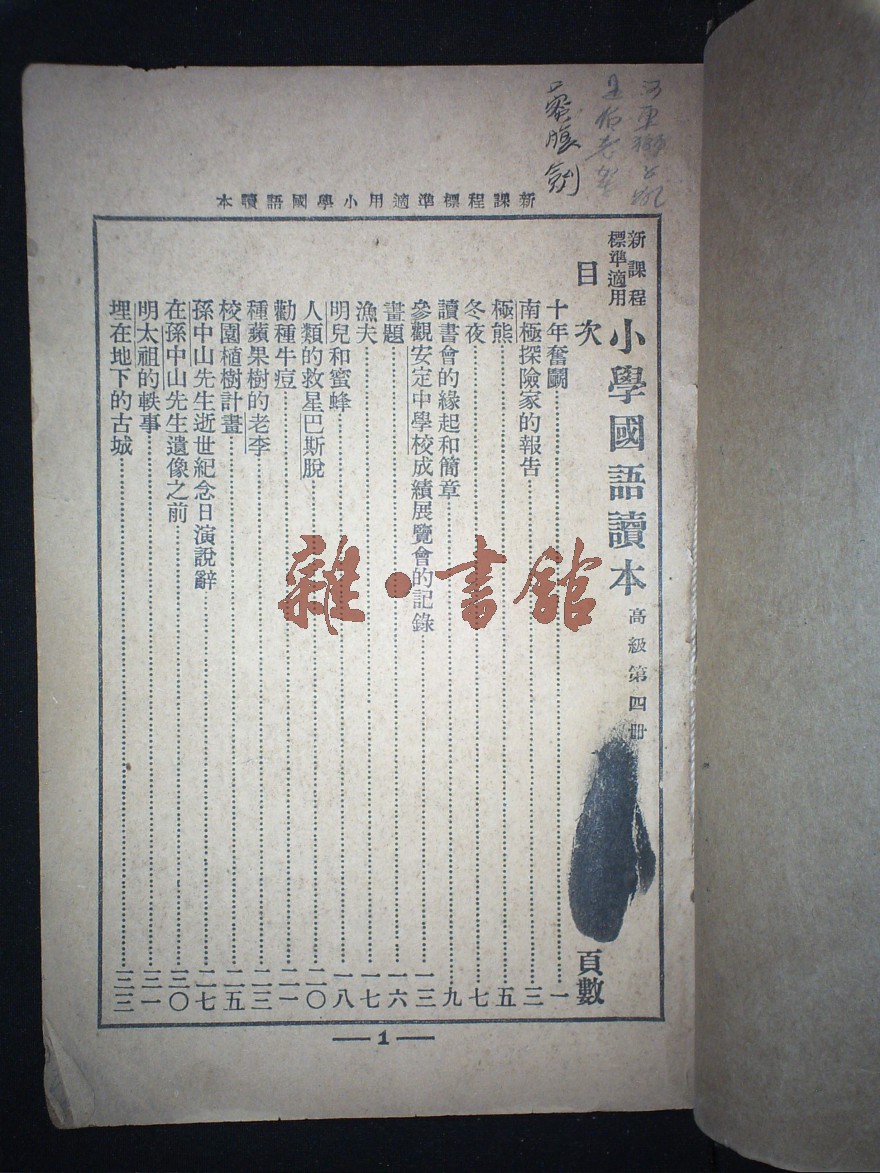 口蜜腹劍
新課程標準適用小學國語讀本
新課程標準適用 小學國語讀本 高級第四冊
目次 頁數
十年奮鬭……一
南極探險家的報告……三
極熊……五
冬夜……七
讀書會的緣起和簡章……九
參觀安定中學校成績展覽會的記錄……一三
畫題……一六
漁夫……一七
明兒和蜜蜂……一八
人類的救星巴斯脫……二〇
勸種牛痘……二一
種蘋果樹的老李……二三
校園植樹計畫……二五
孫中山先生逝世紀念日演說辭……二七
在孫中山先生遺像之前……三〇
明太祖的軼事……三一
埋在地下的古城……三三
雜·書館
1